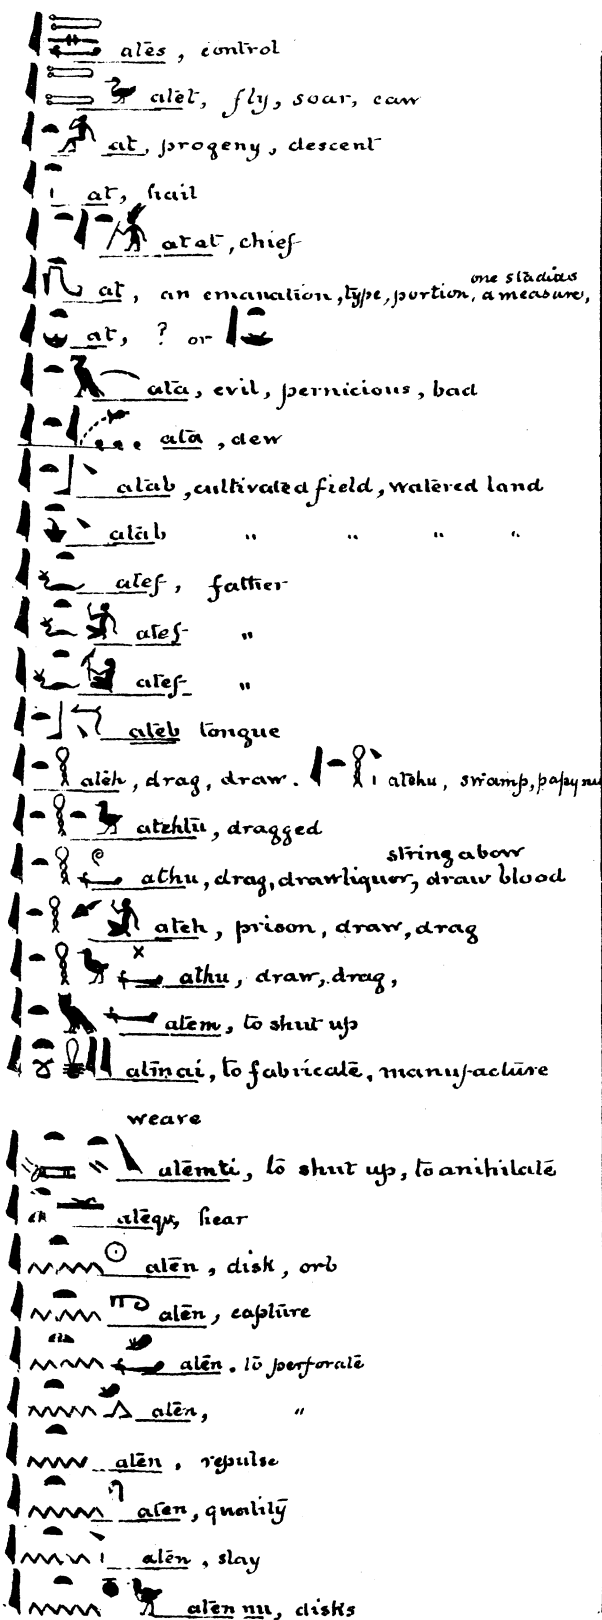 ates, control
atet, fly, soar, caw
at, progeny, descent
at, hail
atat, chief
one stadius
at, an emanation, type, portion, a measure,
at, ? or
ata, evil, pernicious, bad
ata, dew
atab, cultivated field, watered land
atab " " " "
atef, father
atef "
atef "
ateb tongue
ateh, drag, draw. atehu, swamp, papyru
atehtu, dragged
string a bow
athu, drag, draw liquor, draw blood
ateh, prison, draw, drag
athu, draw, drag,
atem, to shut up
atmai, to fabricate, manufacture
weare
atemti, to shut up, to anihilate
atequ, hear
aten, disk, orb
aten, capture
aten. to perforate
aten, "
aten, repulse
aten, quality
aten, slay
aten nu, disks